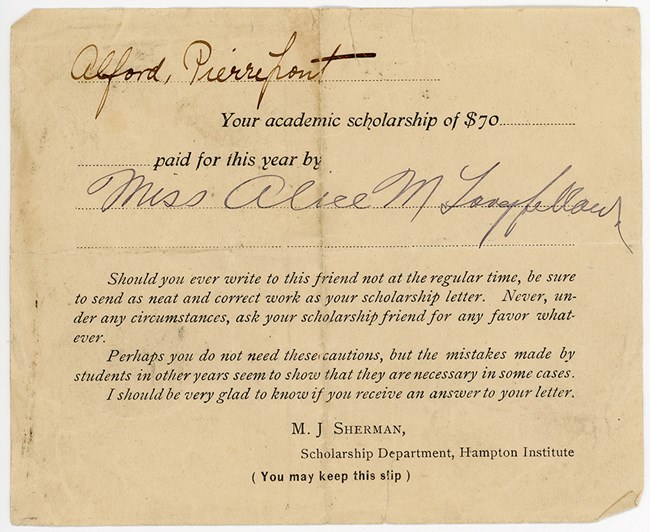 Alford, Pierrepont
Your academic scholarship of $70
paid for this year by
Miss Alice M Longfellow
Should you ever write to this friend not at the regular time, be sure
to send as neat and correct work as your scholarship letter. Never, un-
der any circumstances, ask your scholarship friend for any favor what-
ever.
Perhaps you do not need these cautions, but the mistakes made by
students in other years seem to show that they are necessary in some cases.
I should be very glad to know if you receive an answer to your letter.
M. J SHERMAN,
Scholarship Department, Hampton Institute
( You may keep this slip )